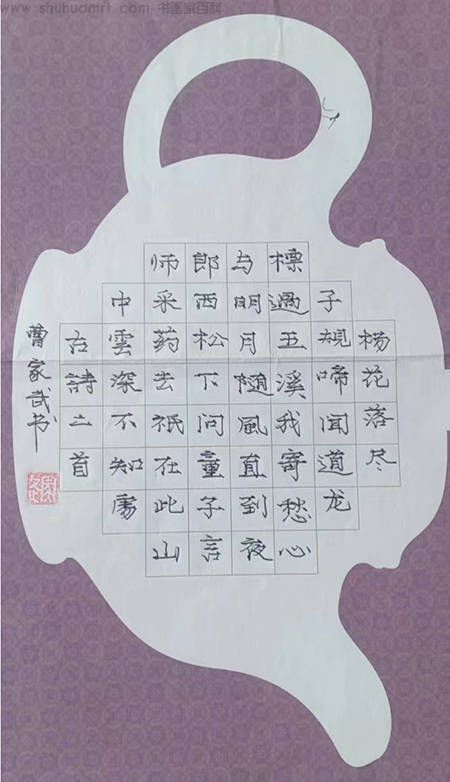 www.shuhuomri.com 书画家百科
杨花落尽
子規啼闻道龙
標過五溪我寄愁心
与明月随風直到夜
郎西松下问童子言
师采药去祇在此山
中雲深不知處
古詩二首
曹家武书